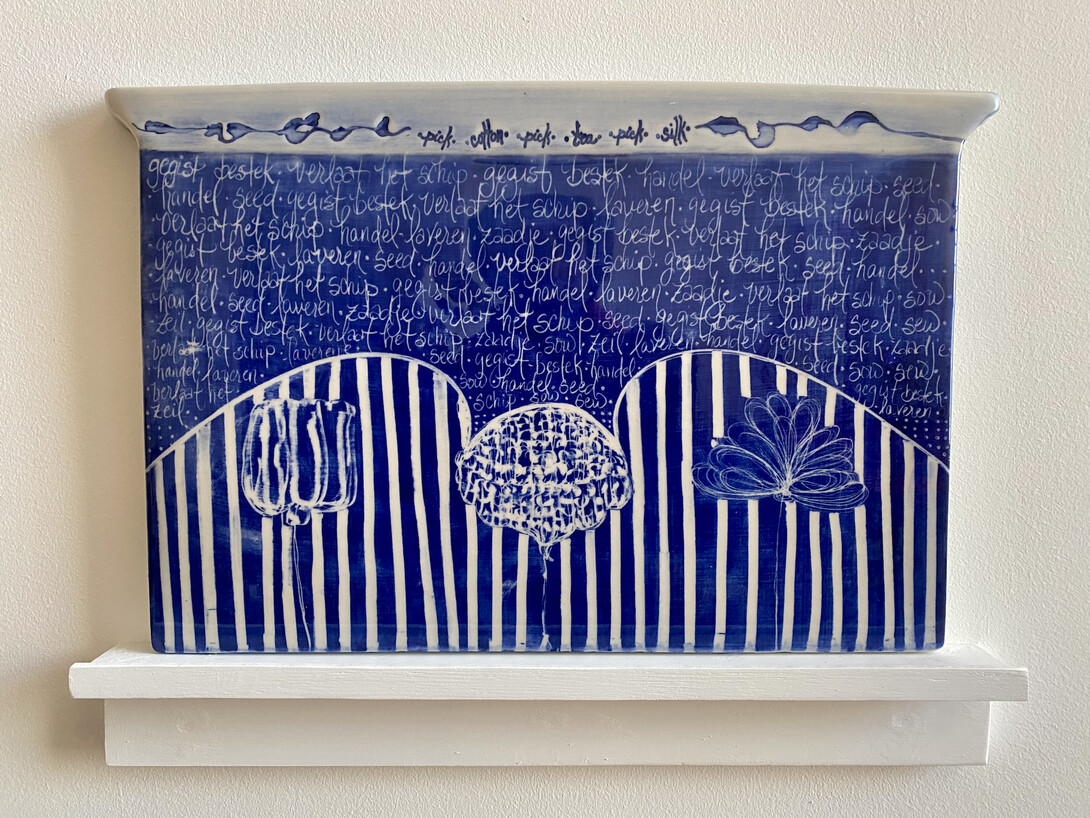 pick · cotton · pick · tea · pick · silk ·
gegist bestek · verlaat het schip · gegist bestek · handel verlaat het schip · seed ·
handel · seed · gegist bestek · verlaat het schip · laveren · gegist bestek · handel · sow
verlaat het schip · handel · laveren · zaadje · gegist bestek · verlaat het schip · zaadje ·
gegist bestek · laveren · seed · handel · verlaat het schip · gegist bestek · seed · handel ·
laveren · verlaat het schip · gegist bestek · handel · laveren · zaadje · verlaat het schip · sow
handel · seed · laveren · zaadje · verlaat het schip · seed · gegist bestek · laveren · seed · sew
zeil · gegist bestek · verlaat het schip · zaadje · sow · zeil · laveren · handel · gegist bestek · zaadje
verlaat het schip · laveren · seed · gegist · bestek · handel seed · sow · sew ·
handel · laveren · sow · handel · seed · gegist bestek ·
verlaat het schip · sow · sew laveren
zeil ·